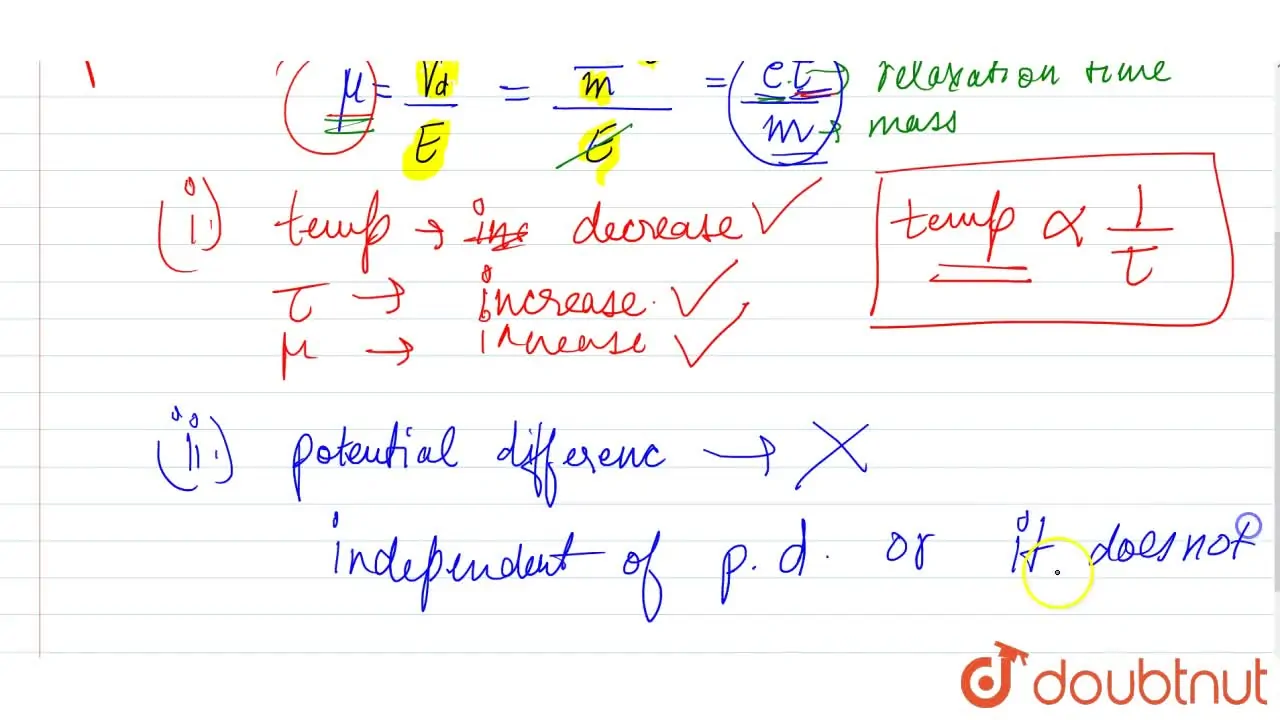 μ = Vd/E = m/E = e.τ/m → relaxation time
→ mass
(i) temp → inc decrease ✓
temp ∝ 1/τ
τ → increase. ✓
μ → increase ✓
(ii.) potential differenc → ✗
independent of p.d. or it does not
doubtnut